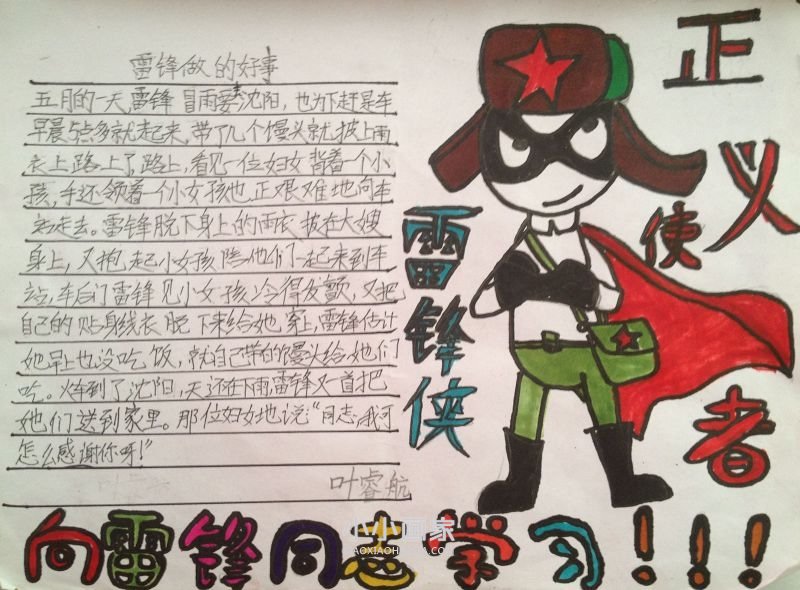 雷锋做的好事
五月的一天,雷锋冒雨要去沈阳,也为下赶是车
早晨5点多就起来,带了几个馒头就披上雨
衣上路上了,路上,看见一位妇女背着一个小
孩,手还领着一个小女孩也正艰难地向车
走去。雷锋脱下身上的雨衣披在大嫂
身上,又抱起小女孩陪他们一起来到车
站,车后门雷锋见小女孩冷得发颤,又把
自己的贴身线衣脱下来给她穿上,雷锋估计
她早上也没吃饭,就自己带的馒头给她们
吃。火车到了沈阳,天还在下雨,雷锋又一首把
她们送到家里。那位妇女地说“同志,我可
怎么感谢你呀!”
叶睿航
雷锋侠
正义使者
向雷锋同志学习!!!
小小画家
AOXIAOH
.CO